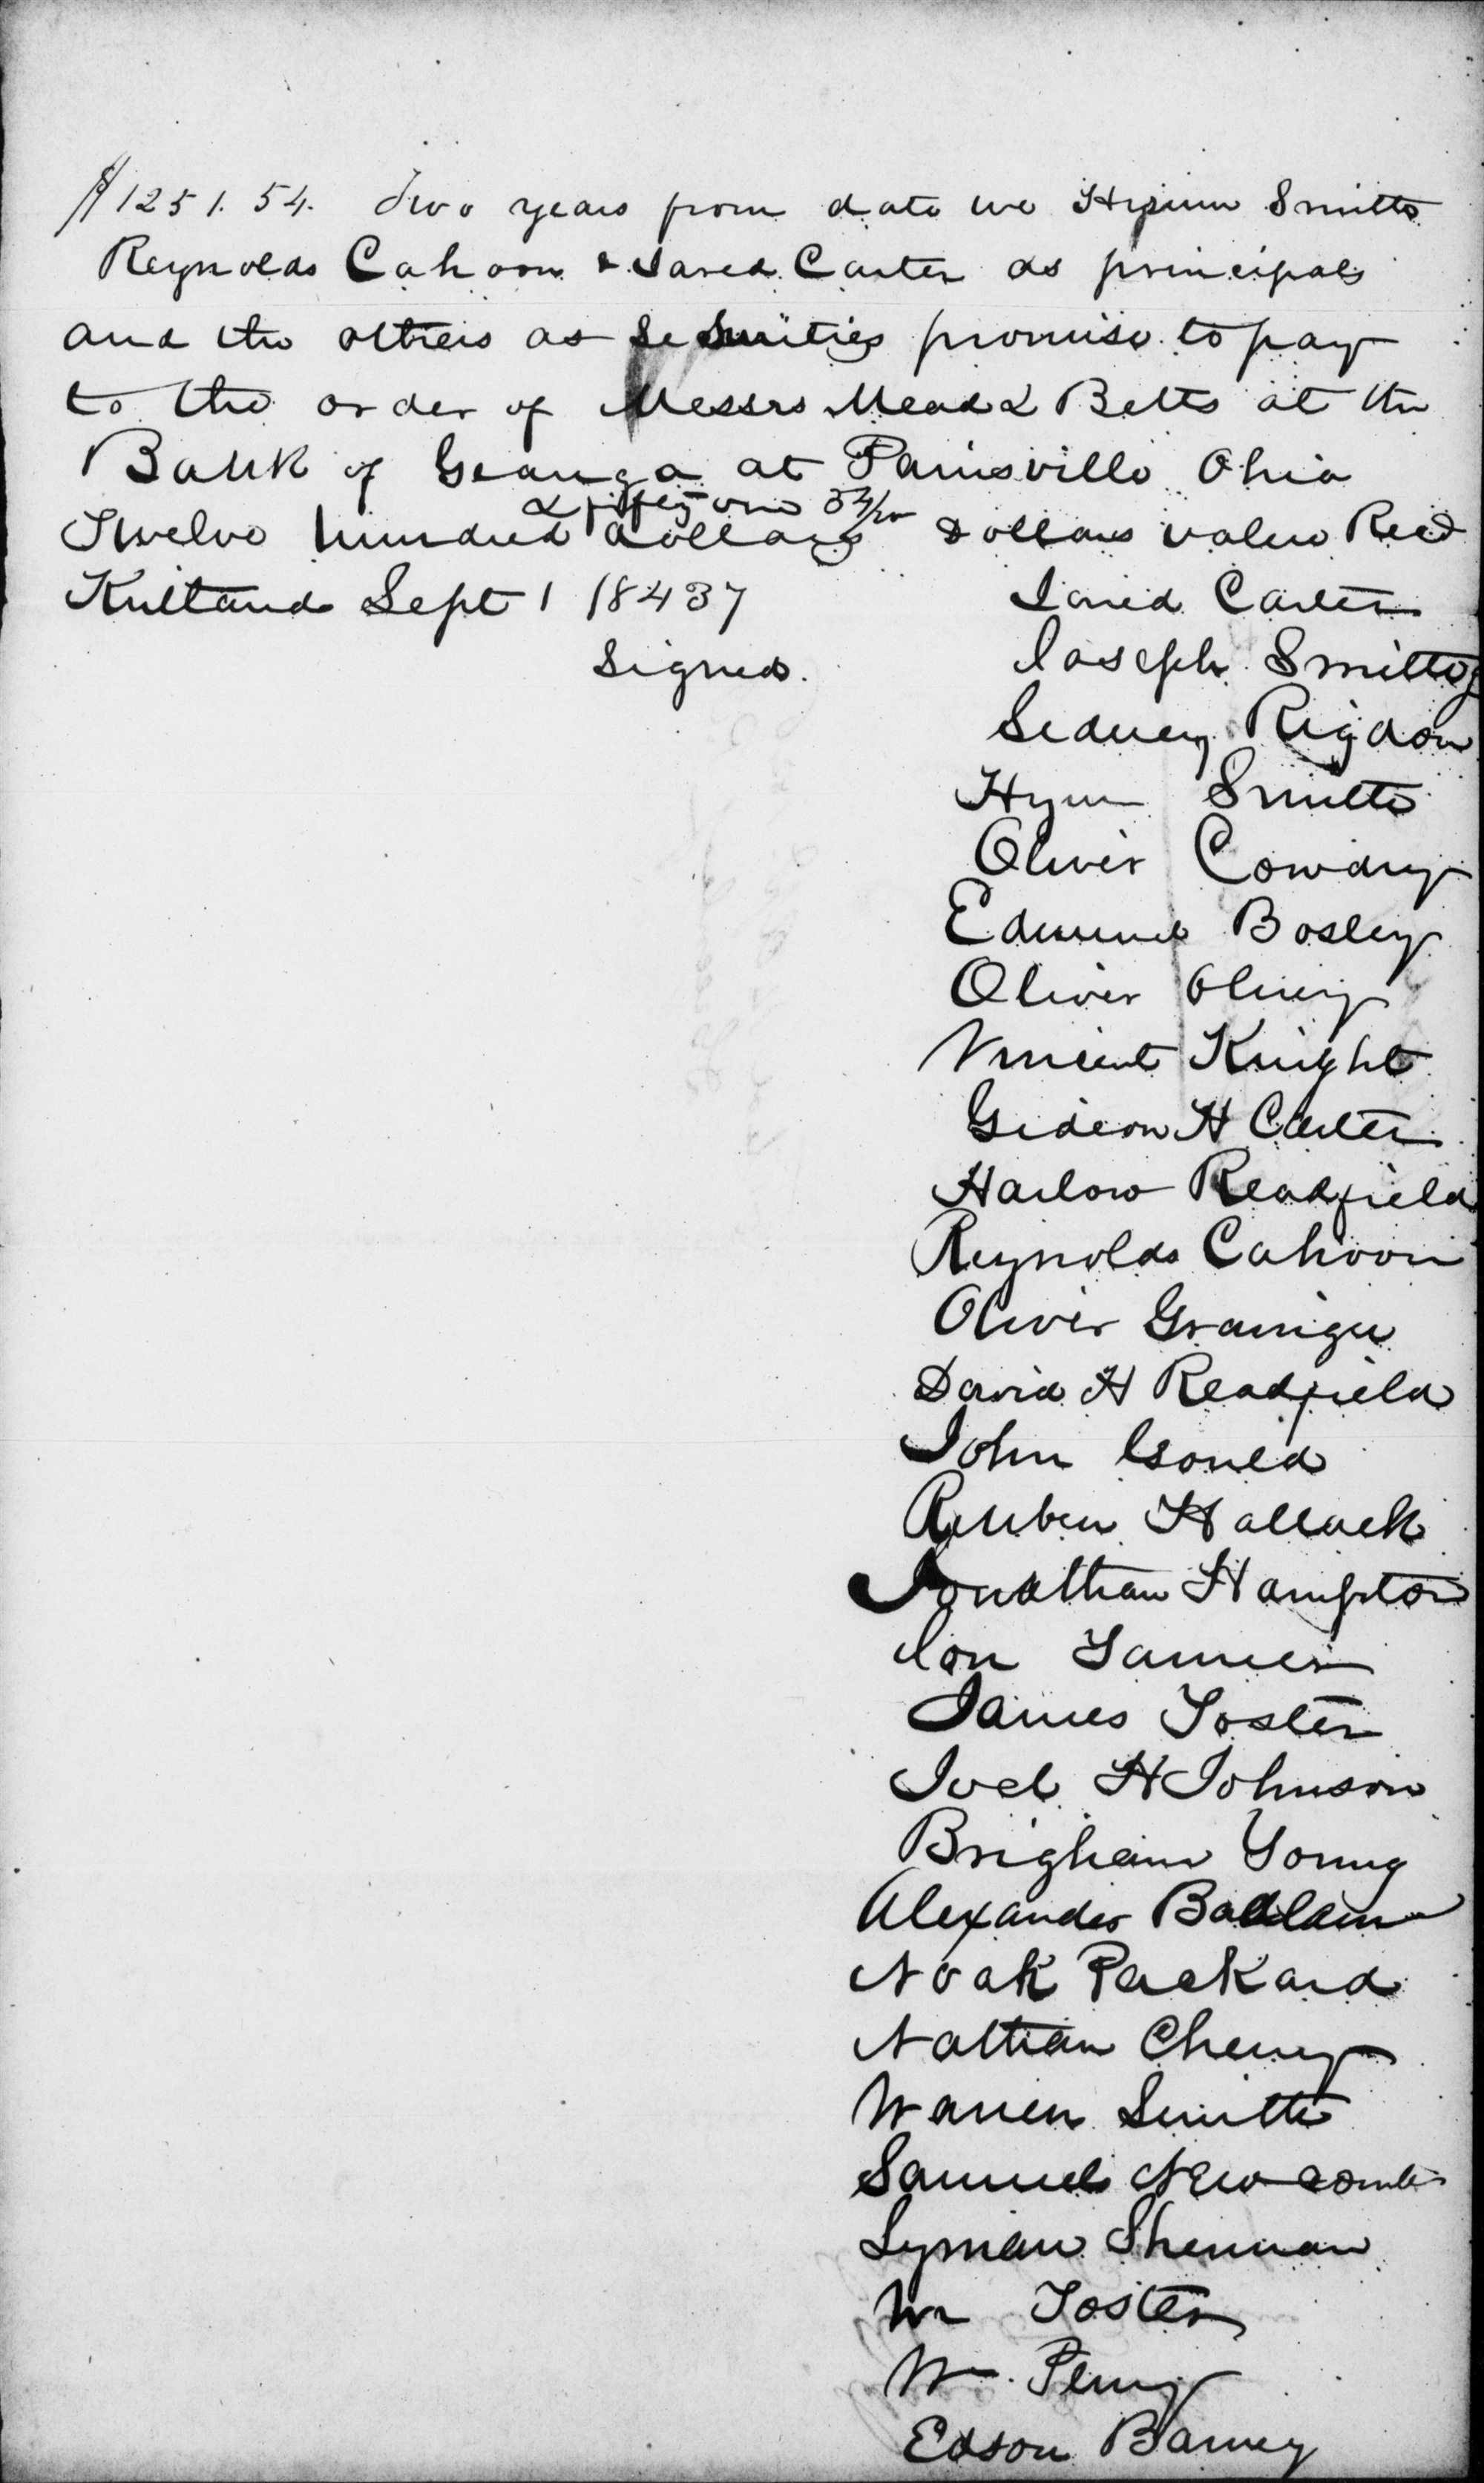 $1251.54. Two years from date we Hyrum Smith
Reynolds Cahoon & Jared Carter as principals
and the others as Securities promise to pay
to the order of Messrs Mead & Betts at the
Bank of Geauga at Painsville Ohio
& fifty one 54/100
Twelve hundred dollars dollars value Recd
Kirtland Sept 1 18437
Jared Carter
Signed. Joseph Smith Jr
Sidney Rigdon
Hyrum Smith
Oliver Cowdry
Edmund Bosley
Oliver Olney
Vincent Knight
Gideon H Carter
Harlow Readfield
Reynolds Cahoon
Oliver Granger
David H Readfield
John Gould
Reuben Hallack
Jonathan Hampton
Jon
James Foster
Joel H Johnson
Brigham Young
Alexander Badlam
Noah Packard
Nathan Cheney
Warren Smith
Samuel Newcomb
Lyman Sherman
Wm Foster
Wm Perry
Edson Barney